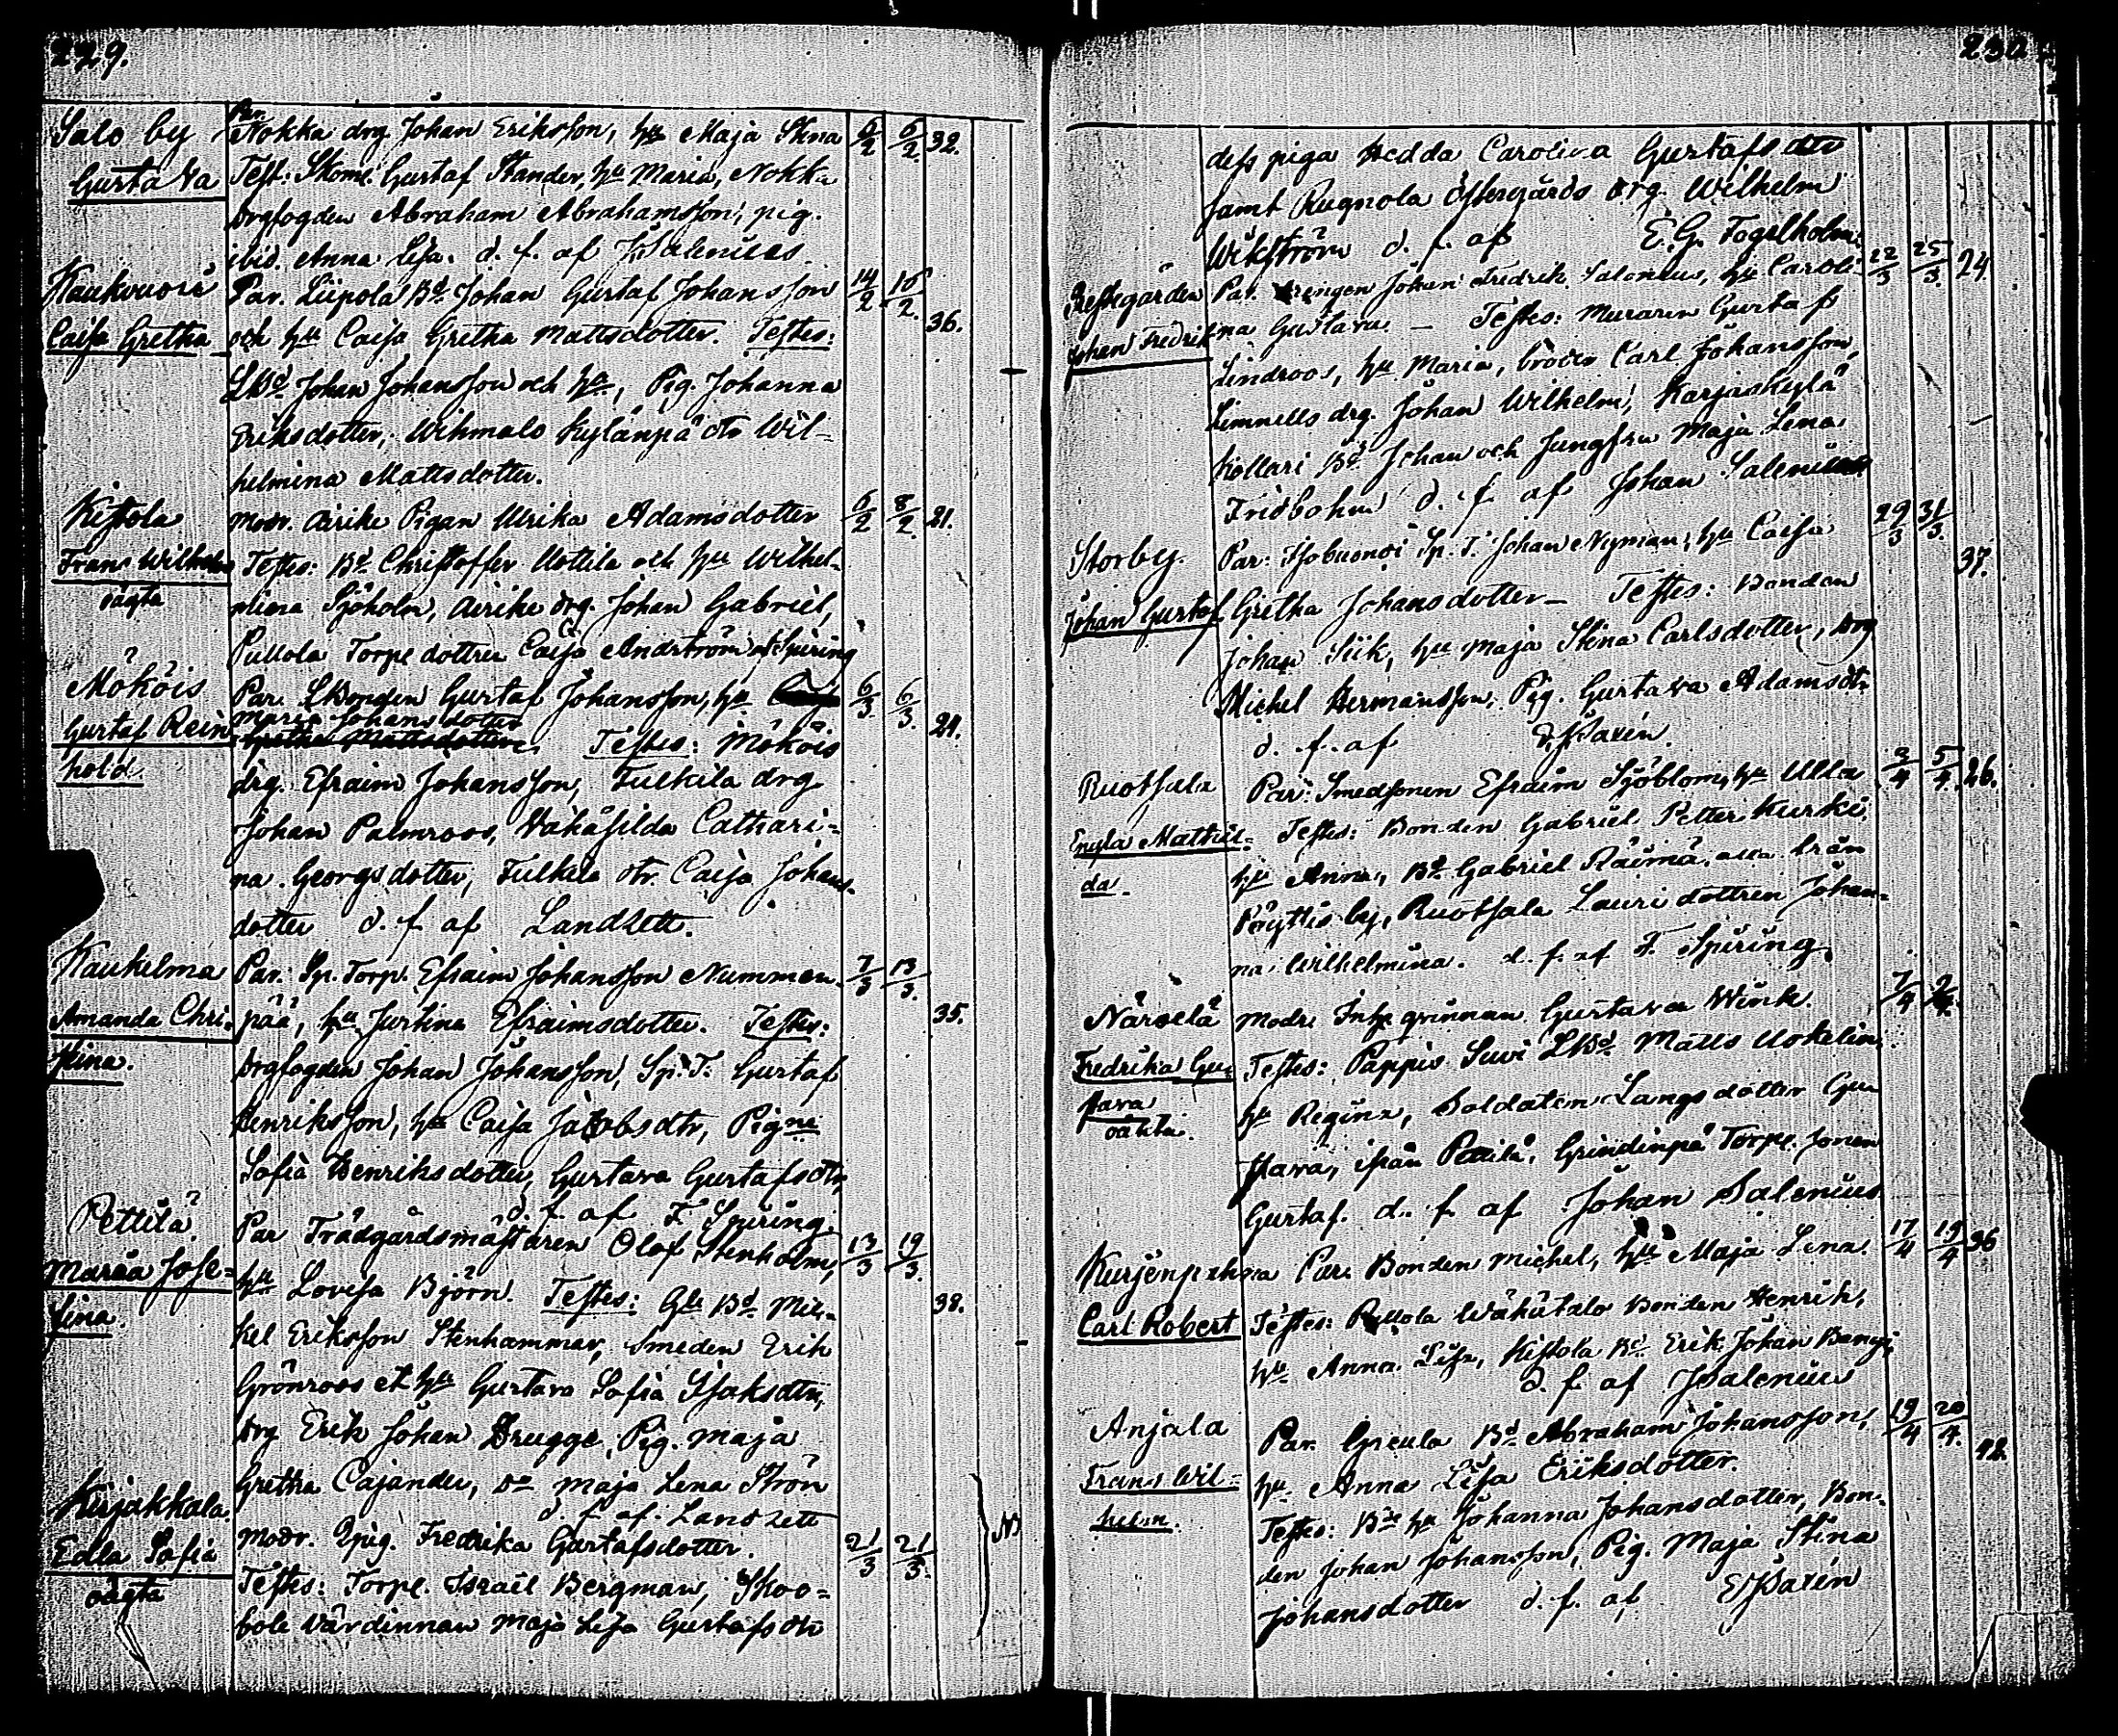 229.
Salo by
Gustava
Par. Nokka drg. Johan Eriksson, hu Maja Stina 6/2 6/2 32.
Test: Skom. Gustaf Stander, hu Maria, Nokka
drgfogden Abraham Abrahamsson, pig.
ibid. Anna Lisa. d. f. af J. Salenius.
Haukvuori
Caisa Gretha
Par. Liipola Bd. Johan Gustaf Johansson 14/2 16/2.
och hu Caisa Gretha Mattsdotter. Testes: 36.
LBd. Johan Johansson och hu, Pig. Johanna
Eriksdotter, Wihmalo Kylänpä dtr Wil-
helmina Mattsdotter.
Kistola
Frans Wilhelm
oägta
Modr. Airike Pigan Ulrika Adamsdotter 6/2 8/2. 21.
Testes: Bd. Christoffer Uotila och hu Wilhel-
mina Sjöholm, Airike drg. Johan Gabriel,
Pullola Torpe dottren Caisa Andström af Spiring
Mököis
Gustaf Rein-
hold.
Par. LBonden Gustaf Johansson, hu 6/3 6/3. 24.
Maria Johansdotter
Gretha Mattsdotter. Testes: Mököis
drg. Efraim Johansson, Tulkila drg
Johan Palmroos, Wähäsilda Cathari-
na Georgsdotter, Tulkila dtr. Caisa Johans-
dotter d. f. af Landzett.
Haukelma
Amanda Chri-
stina.
Par. Sp. Torp. Efraim Johansson Nummen- 7/3 13/3.
pää, hu Justina Efraimsdotter. Testes: 35.
Drgfogden Johan Johansson, Sp. T. Gustaf
Henriksson, hu Caisa Jacobsdtr, Pigne
Sofia Henriksdotter, Gustava Gustafsdtr,
d. f. af F. Spiring.
Pettilä
Maria Jose-
fina
Par Trädgårdsmästaren Olof Stenholm, 13/3 19/3.
hu Lovisa Björn. Testes: Gle Bd Mic- 38.
kel Eriksson Stenhammar, Smeden Erik
Grönroos et hu Gustava Sofia Isaksdtr,
Drg Erik Johan Drugge, Pig. Maja
Gretha Cajander, do Maja Lena Ström
d. f. af. Landzett
Kirjakkala.
Edla Sofia
oägta
Modr. Pig. Fredrika Gustafsdotter. 21/3 21/3.
Testes: Torpe. Israël Bergman, Skoo-
bole värdinnan Maja Lisa Gustafsdtr
230
dess piga Hedda Carolina Gustafsdtr
samt Rugnola Östergårds drg. Wilhelm
Wikström d. f. af E. G. Fogelholm.
Prestegården
Johan Fredrik
Par. Drengen Johan Fredrik Salonius, hu Caroli- 22/3 25/3. 24
na Gustava — Testes: Muraren Gustaf
Lindroos, hu Maria, broder Carl Johansson,
Limnells drg. Johan Wilhelm, Karjaskylä
Kollari Bd. Johan och Jungfru Maja Lena
Fridbohm d. f. af Johan Salenius
Storby.
Johan Gustaf
Par: Sp. T. Johan Nyman, hu Caisa 29/3 31/3.
Gretha Johansdotter — Testes: Bonden 37.
Johan Siik, hu Maja Stina Carlsdotter, Drg
Michel Hermansson, Pig. Gustava Adamsdt.
d. f. af E. J. Paxén.
Ruotsala
Engla Mathil-
da.
Par: Smedssonen Efraim Sjöblom, hu Ulla 3/4 5/4. 26.
Testes: Bonden Gabriel Petter Kurki,
hu Anna, Bd. Gabriel Räimä, från
Pöyttis by, Ruotsala Lauri dottren Johan-
na Wilhelmina. d. f. af F. Spiring.
Närvelä
Fredrika Gu-
stava
oäkta.
Modr. Inh. qvinnan Gustava Wink. 7/4 9/4.
Testes: Pappis Suvi LBd. Matts Uokelin,
hu Regina, Soldaten Längs dotter Gu-
stava, ifrån Pettilä, Grindinpä Torp. sonen
Gustaf. d. f. af Johan Salenius
Kurjenpahna
Carl Robert
Par. Bonden Michel, hu Maja Lena. 17/4 19/4 36
Testes: Pullola Wähätalo Bonden Henrik,
hu Anna Lisa, Kistola Bd. Erik Johan
d. f. af J. Salenius
Anjala
Frans Wil-
helm.
Par. Greula Bd. Abraham Johansson, 19/4 20/4.
hu Anna Lisa Eriksdotter. 42.
Testes: Bde hu Johanna Johansdotter, Bon-
den Johan Johansson, Pig. Maja Stina
Johansdotter d. f. af E. J. Paxén